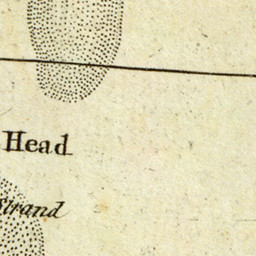 Head
Strand